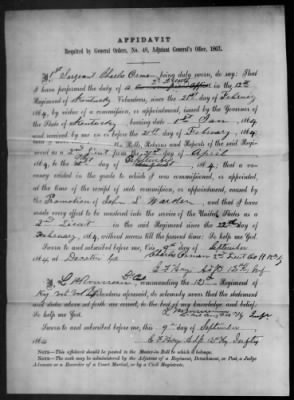 AFFIDAVIT
Required by General Orders, No. 48, Adjutant General's Office, 1863.
I, Sergeant Charles Osman being duly sworn, do say: That
I have performed the duty of a 2d Lieut in the 12th
Regiment of Kentucky Volunteers, since the 21st day of February
1864, by virtue of a commission, or appointment, issued by the Governor of
the State of Kentucky bearing date 1864,
and received by me on or before the 21st of February, 1864,
the Rolls, Returns and Reports of the said Regi-
ment as a 2nd Lieut from the day of April
1864, to the of September 1864; that a va-
cancy existed in the grade to which I was commissioned, or appointed,
at the time of the receipt of such commission, or appointment, caused by
the Promotion of John S. Warden, and that I have
made every effort to be mustered into the service of the United States as a
2nd Lieut in the said Regiment since the 22nd day of
February, 1864, without success till the present time: So help me God.
Sworn to and subscribed before me, this 9th day of September
1864, at Decatur Ga Charles Osman 2nd Lieut Co H 12 Ky
12th Ky Inf
I, L H Rousseau, commanding the 12th Regiment of
Ky Vol Inf Volunteers aforesaid, do solemnly swear that the aforesaid
statements above set forth are correct, to the best of my knowledge and belief:
So help me God.
Sworn to and subscribed before me, this 9th day of September,
1864
NOTE.—This affidavit should be pasted to the Muster-in Roll to which it belongs.
NOTE.—The oath may be administered by the Adjutant of a Regiment, Detachment, or Post, a Judge
Advocate or a Recorder of a Court Martial, or by a Civil Magistrate.